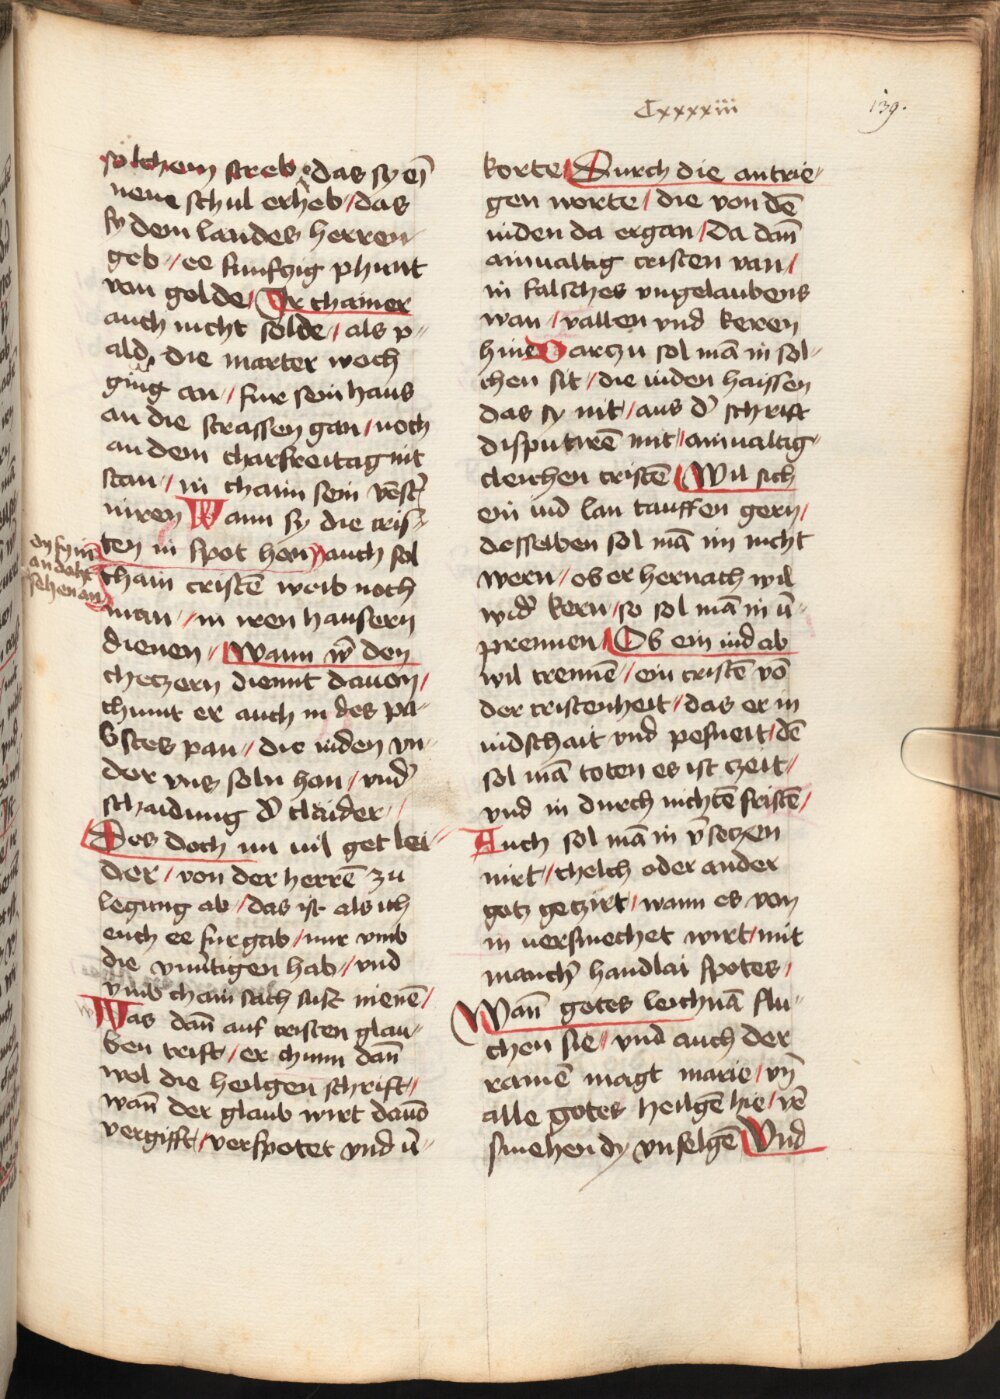 Cxxxxiii
139.
solchem streb das sy ei͂
neue schul erheb / das
sy dem landes herren
geb / ee funfczig phunt
von golde / Er chainer
auch nicht solde / als p=
ald die marter woch
ging an / fur sein haus
an die strassen gan / noch
an dem charfreitag nit
stan / in chaim sein venst̕
niren Wann sy die cris=
ten in spot hen / auch sol
en sy in
andaht
sehen an
chain cristē weib noch
man / in iren hausern
dienen / Wann w̕ den
checzern diennt dauon /
chumt er auch in des pa=
bstes pan / die iuden vn=
der vns soln hon / vnd̕
schaidung d̕ claider /
Des doch nu uil get lei=
der / von der herrē zu
legung ab / das ist als ich
euch ee fur gab / nur vmb
die vnnutigen hab / vnd
vmb chain sach sust nienē /
Was dan̄ auf cristen glau=
ben trift / er chumt dan̄
wol die heilgen schrift /
wan̄ der glaub wirt dauō
vergifft / verspotet vnd ū=
korte / Durch die antrie=
gen worte / die von dē
iuden da ergan / Da dan̄
ainualtig cristen van /
in falsches vngelaubens
wan / vallen vnd keren
hine Darczu sol mā in sol=
chen sit / die iuden haissen
das sy nit / aus d̕ schrift
disputirē mit / ainualtig=
cleichen cristē / Wil sich
ein iud lan tauffen gern /
desselben sol mā im nicht
wern / ob er hernach wil
wid̕ kern / so sol mā in ū=
prennen / Ob ein iud ab
wil trennē / ein cristē vō
der cristenheit / das er in
iudschait vnd pesneit / dē
sol mā toten es ist czeit /
vnd in durch nichtē fristē /
Auch sol mā in v̕seczen
nirt / chelch oder ander
gotz geczirt / wann es von
in uersmechet wirt / mit
manch̕ handlai spotes /
Wan̄ gotes leichnā flu=
chen sie / vnd auch der
rainē magt marie / vn̄
alle gotes heilgē hie / v̄e
smehen dy vnselgē Vnd